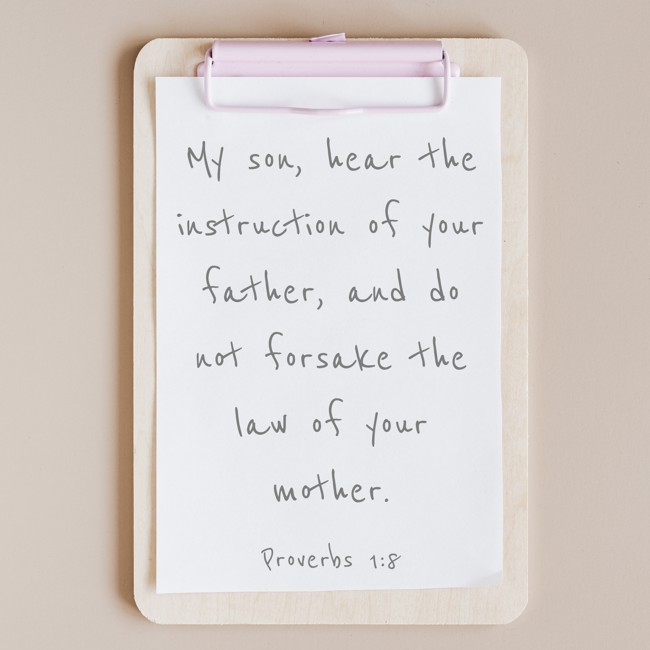 My son, hear the
instruction of your
father, and do
not forsake the
law of your
mother.
Proverbs 1:8